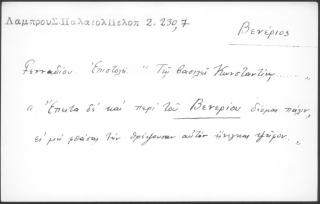 Λαμπρου Σ. Παλαιολ Πελοπ 2. 230,7
Βενέριος
Γενναδίου Ἐπιστολή. "Τῷ βασιλεῖ Κωνσταντίνῳ ..... "
" Ἔπειτα δὲ καὶ περὶ τοῦ Βενερίου δέομαι πάλιν,
εἰ μὴ τὴν αὐτὸν "